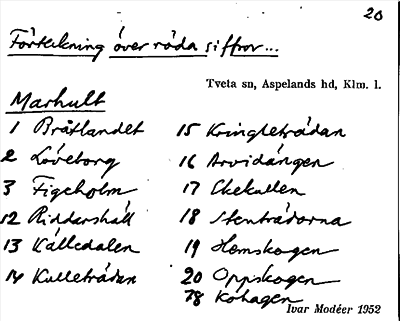 20
Förteckning över röda siffror...
Tveta sn, Aspelands hd, Klm. l.
Marhult
1 Bråtlandet
2 Löveborg
3 Figeholm
12 Riddershäll
13 Källedalen
14 Kulleträdan
15 Kringleträdan
16 Arvidängen
17 Ekekullen
18 Stenträdorna
19 Hemskogen
20 Oppskogen
78 Kohagen
Ivar Modéer 1952